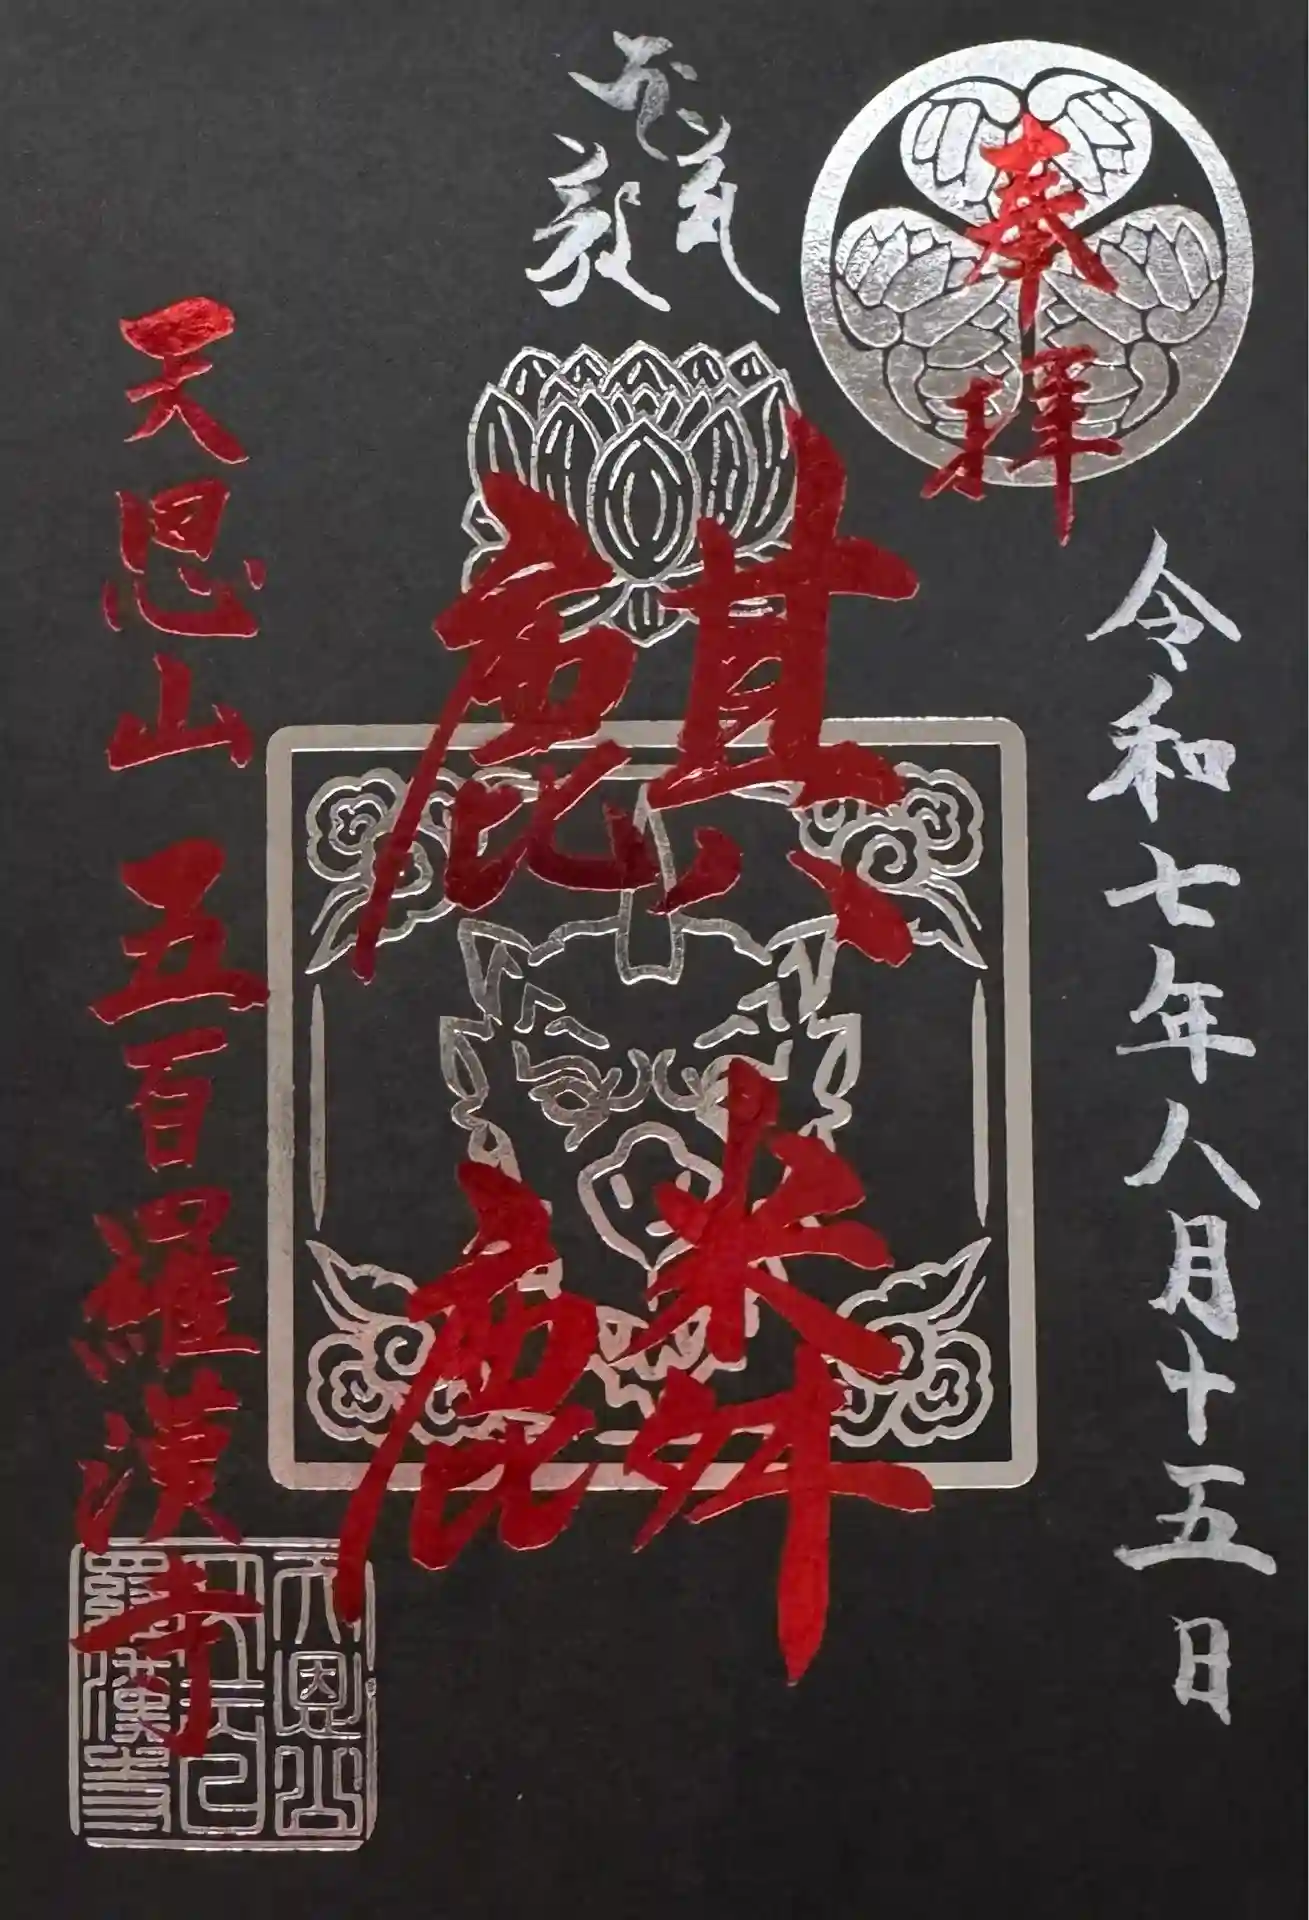 奉拝
令和七年八月十五日
麒麟
天恩山 五百羅漢寺
天恩山
五百
羅漢寺